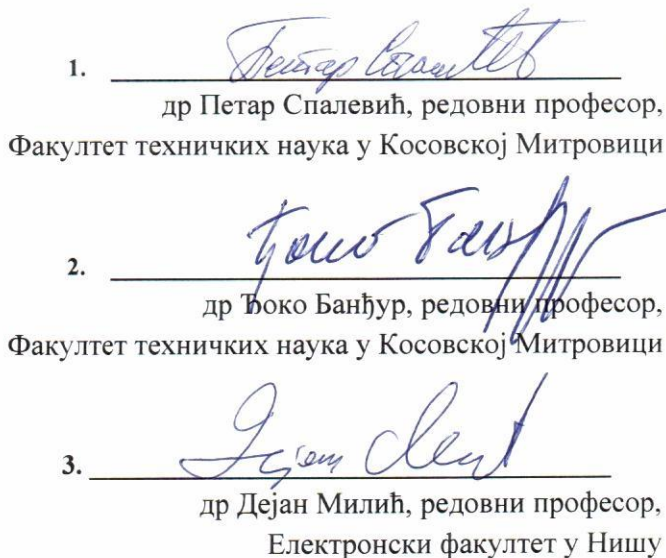 1. Петар Спалевић
др Петар Спалевић, редовни професор,
Факултет техничких наука у Косовској Митровици
2. Ђоко Банђур
др Ђоко Банђур, редовни професор,
Факултет техничких наука у Косовској Митровици
3. Дејан
др Дејан Милић, редовни професор,
Електронски факултет у Нишу